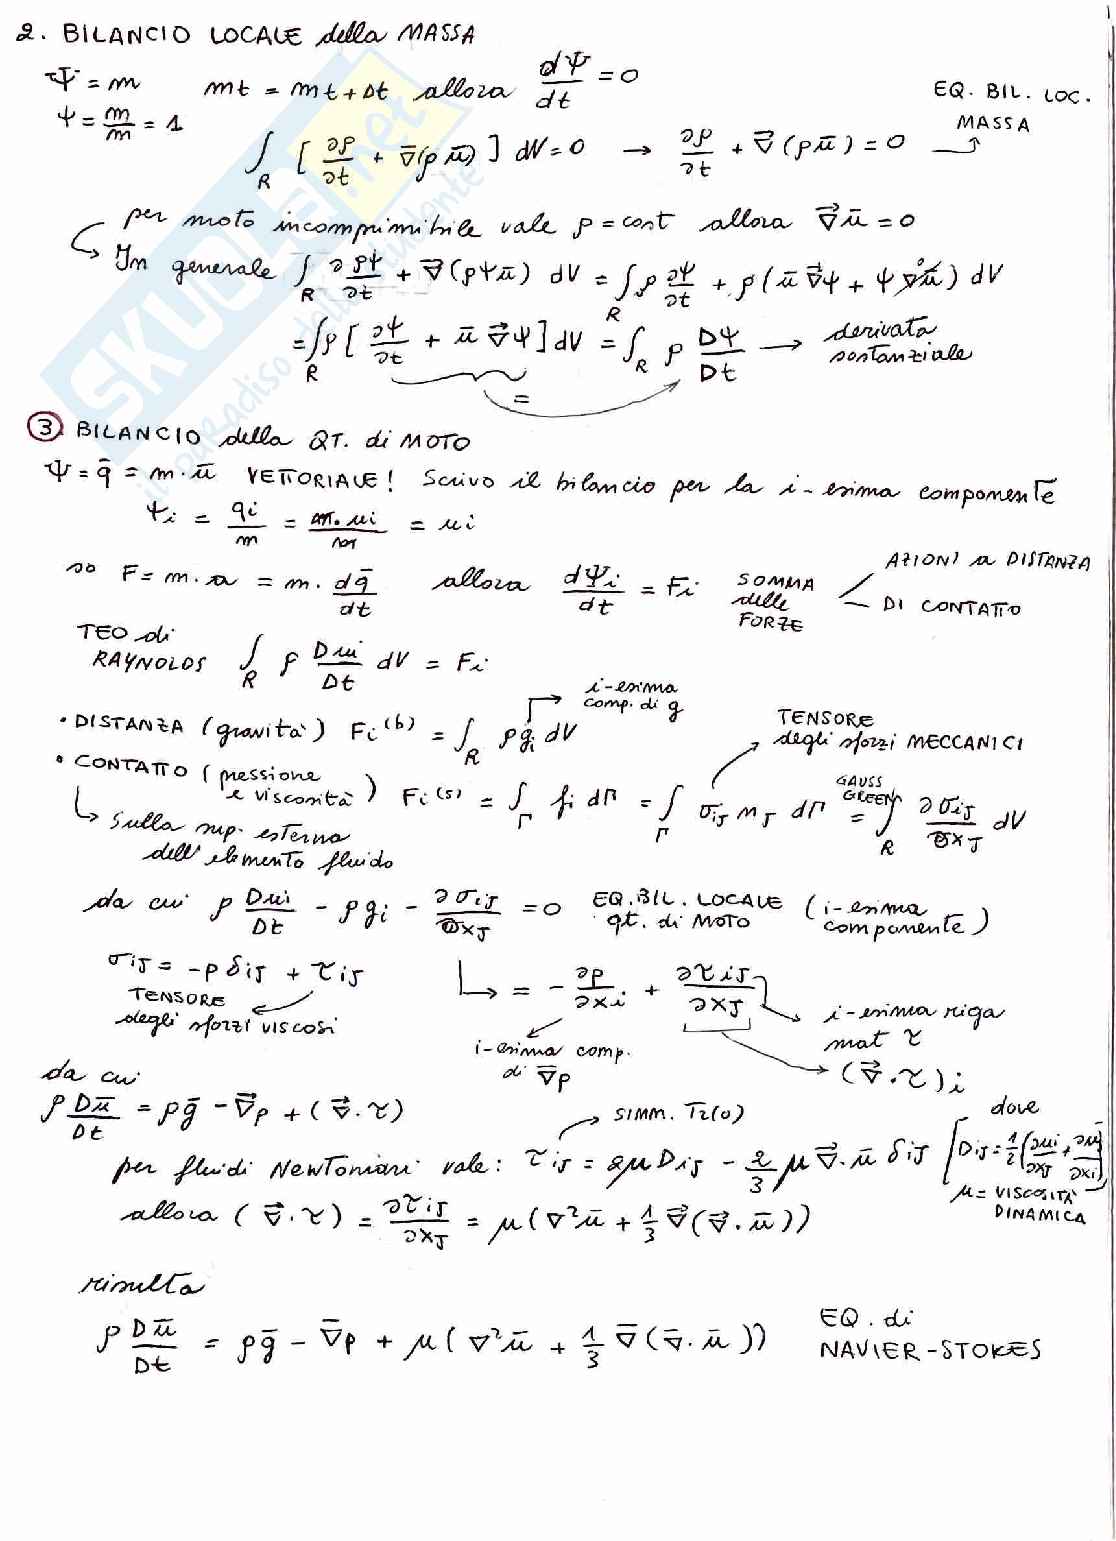 2. BILANCIO LOCALE della MASSA
Ψ = m   m_t = m_{t+Δt} allora dΨ/dt = 0
ψ = m/m = 1
EQ. BIL. LOC. MASSA
∫_R [∂ρ/∂t + ∇̄(ρū)] dV = 0 → ∂ρ/∂t + ∇⃗(ρū) = 0
per moto incomprimibile vale ρ = cost allora ∇⃗ū = 0
In generale ∫_R ∂ρψ/∂t + ∇⃗(ρψū) dV = ∫_R ρ ∂ψ/∂t + ρ(ū ∇⃗ψ + ψ ∇⃗ū) dV
= ∫_R ρ[∂ψ/∂t + ū ∇⃗ψ] dV = ∫_R ρ Dψ/Dt → derivata sostanziale
=
3 BILANCIO della QT. di MOTO
Ψ = q̄ = m·ū VETTORIALE! Scrivo il bilancio per la i-esima componente
ψi = qi/m = m·ui/m = ui
so F = m·a = m·dq̄/dt allora dΨi/dt = Fi SOMMA delle FORZE
AZIONI a DISTANZA
DI CONTATTO
TEO di RAYNOLDS ∫_R ρ Dui/Dt dV = Fi
i-esima comp. di g
• DISTANZA (gravità) Fi^(b) = ∫_R ρ gi dV
TENSORE degli sforzi MECCANICI
• CONTATTO (pressione e viscosità) Fi^(s) = ∫_Γ fi dΓ = ∫_Γ σij nj dΓ = ∫_R ∂σij/∂xj dV
GAUSS GREEN
Sulla sup. esterna dell'elemento fluido
da cui ρ Dui/Dt - ρgi - ∂σij/∂xj = 0 EQ. BIL. LOCALE qt. di MOTO (i-esima componente)
σij = -p δij + τij
= -∂p/∂xi + ∂τij/∂xj
TENSORE degli sforzi viscosi
i-esima riga mat τ
i-esima comp. di ∇̄p
(∇⃗·τ)i
da cui
ρ Dū/Dt = ρḡ - ∇̄p + (∇⃗·τ)
SIMM. Tr(0)
dove
per fluidi Newtoniani vale: τij = 2μ Dij - 2/3 μ ∇⃗·ū δij [Dij = 1/2(∂ui/∂xj + ∂uj/∂xi)
μ = VISCOSITÀ DINAMICA
allora (∇⃗·τ) = ∂τij/∂xj = μ(∇²ū + 1/3 ∇⃗(∇⃗·ū))
risulta
ρ Dū/Dt = ρḡ - ∇̄p + μ(∇²ū + 1/3 ∇̄(∇̄·ū)) EQ. di NAVIER-STOKES
SKUOLA.net
il paradiso dello studente